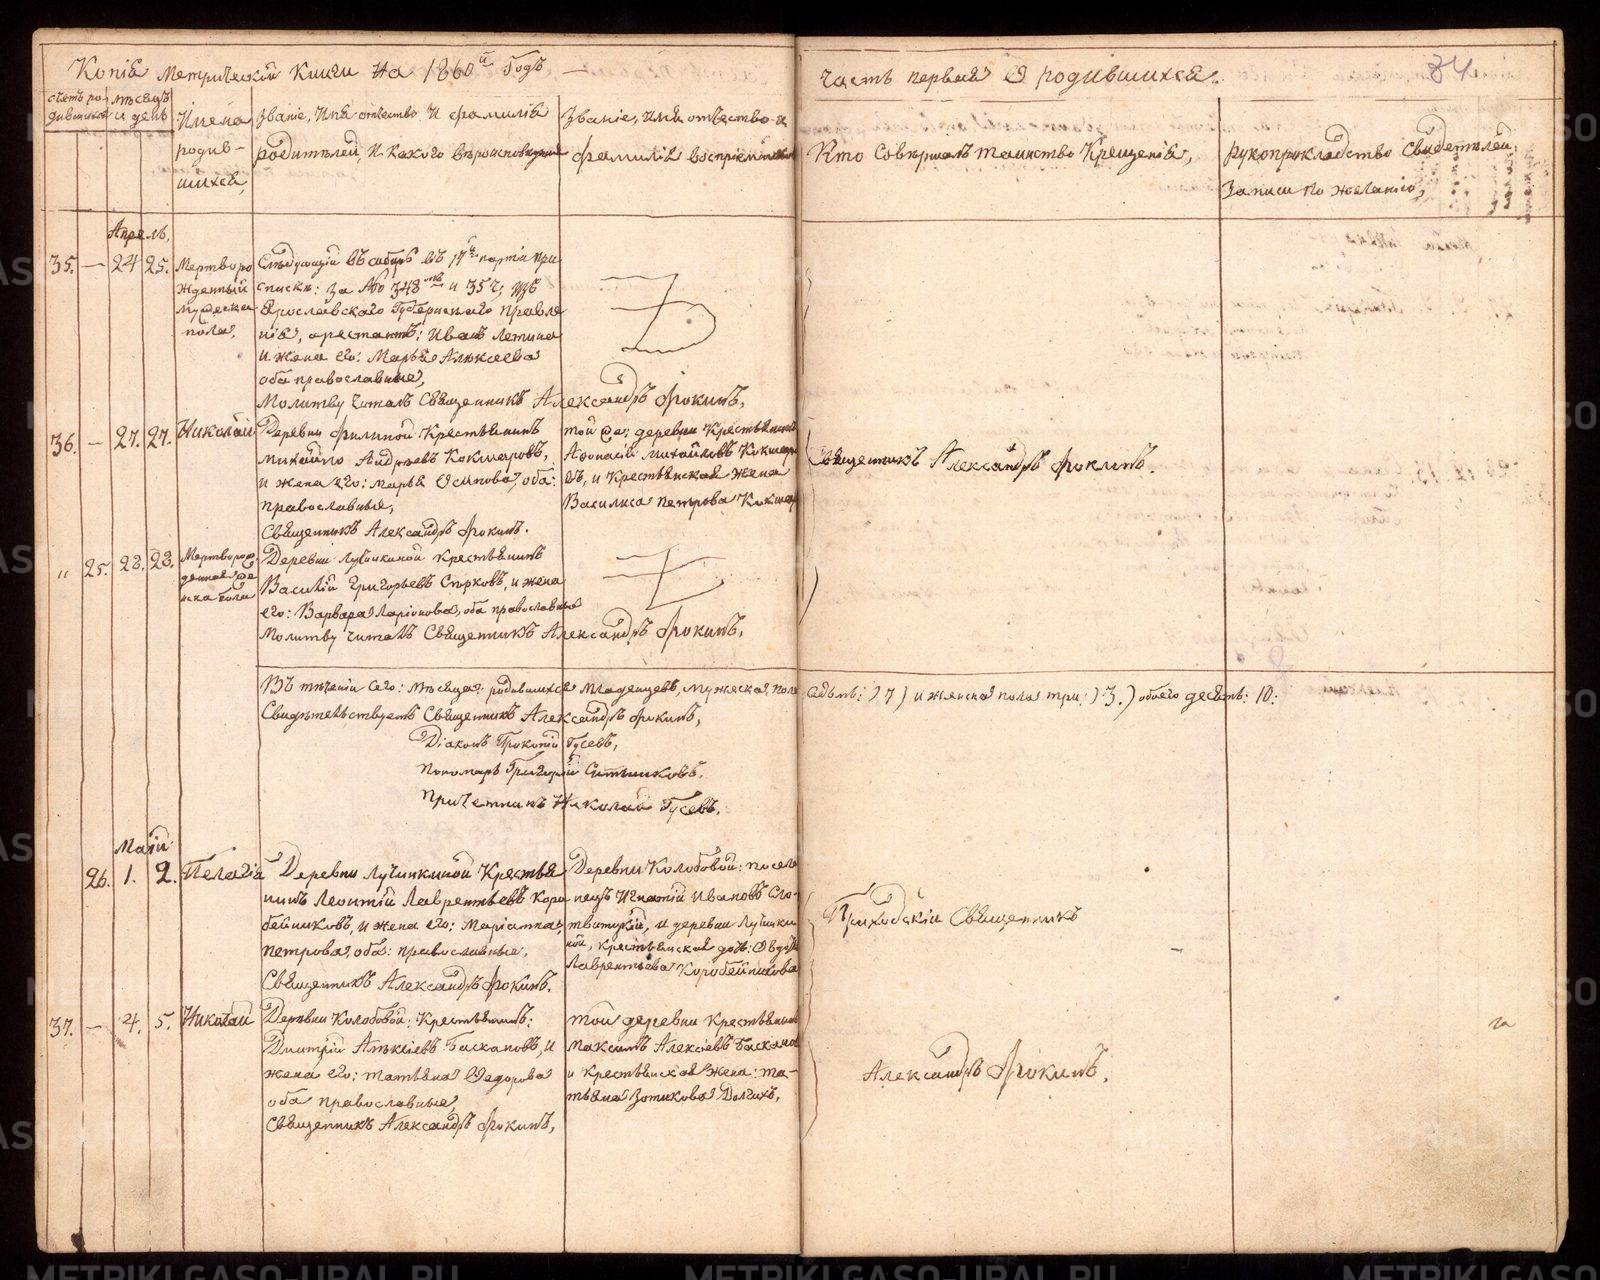 Копія Метрической Книги на 1860й Годъ —
часть первая О родившихся.
34
счетъ ро-
дившихся
мѣсяцъ
и день
Имена
родив-
шихся,
Званіе, Имя отчество и фамилія
родителей, и какого вѣроисповеданія
Званіе, имя отчество и
фамилія воспріемниковъ
Кто Совершалъ таинство Крещенія,
рукоприкладство Свидетелей
Записи по желанію,
Апрель,
35. — 24 25.
Мертворо
жденный
мужеска
пола,
Слѣдующій въ сибирь въ 17й партіи при
списке: за № 348мъ и 352; изъ
Ярославскаго Губернскаго правле
нія, арестантъ: Иванъ Летина
и жена его: Марья Алексеева
оба православные,
Молитву читалъ Священникъ Александръ Фокинъ,
36. — 27. 27.
Николай
Деревни Филиной Крестьянинъ
михайло Андреевъ Кокшаровъ,
и жена его: марья Осипова, оба:
православные,
Священникъ Александръ Фокинъ.
той же: деревни Крестьянинъ
Афонасій михайловъ Кокшаро
въ, и Крестьянская жена
Василиса петрова Кокшар
Священникъ Александръ Фокинъ.
" 25. 28. 28.
Мертворож
денная же
нска пола
Деревни Лучинкиной крестьянинъ
Василій Григорьевъ Серковъ, и жена
его: Варвара Ларіонова, оба православны
Молитву читалъ Священникъ Александръ Фокинъ,
Въ теченіи сего: мѣсяца: родившихся младенцевъ, мужеска, пола седмь: )7) и женска пола три:)3.) обоего десять: 10:
Свидѣтельствуетъ Священникъ Александръ Фокинъ,
Діаконъ Прокопій Гусевъ,
Пономарь Григорій Ситниковъ.
Причетникъ Николай Гусевъ.
Май:
26. 1. 2.
Пелагія
Деревни Лучинкиной Крестья
нинъ Леонтій Лаврентьевъ Коро
бейниковъ, и жена его: Маріамна,
петрова, оба: православные,
Священникъ Александръ Фокинъ.
Деревни Колобовой: посел
нецъ Игнатій Ивановъ Сло-
твицкій, и деревни Лучинки
ной, крестьянская дочь: Овдо
Лаврентьева Коробейникова
Приходскій Священникъ
37. — 4. 5.
Николай
Деревни Колобовой: Крестьянинъ:
Дмитрій Алексіевъ Баскановъ, и
жена его: татьяна Ѳедорова
оба православные,
Священникъ Александръ Фокинъ,
той деревни Крестьянинъ
Максимъ Алексіевъ Баскано
и крестьянская жена: та-
тьяна Зотикова Долгихъ,
Александръ Фокинъ.
METRIKI.GASO-URAL.RU
METRIKI.GASO